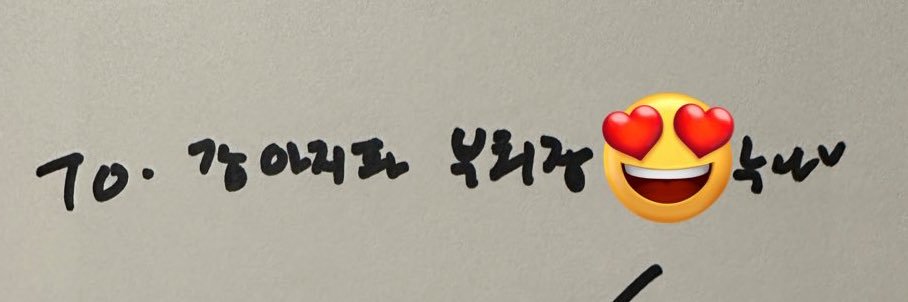 TO. 강아지파 부회장 누나